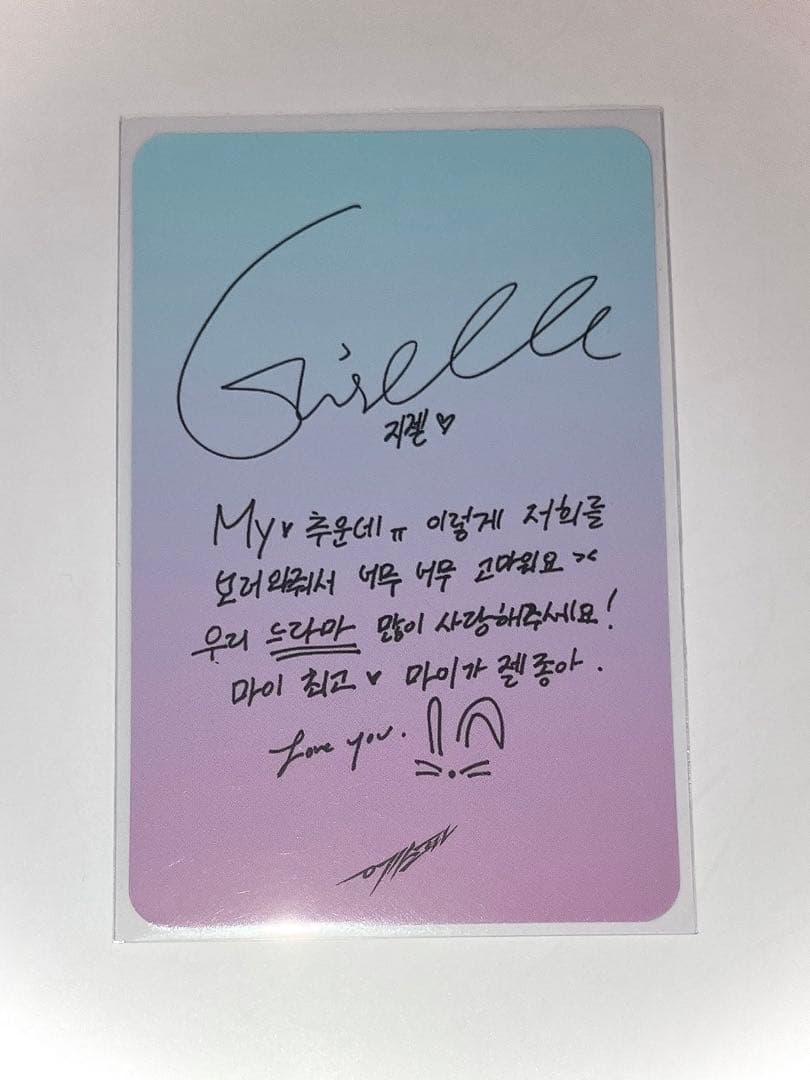 Giselle
지젤♡
My♥ 추운데ㅠ 이렇게 저희를
보러와줘서 너무 너무 고마워요 ><
우리 드라마 많이 사랑해주세요!
마이 최고♥ 마이가 젤 좋아.
Love you.
에스파